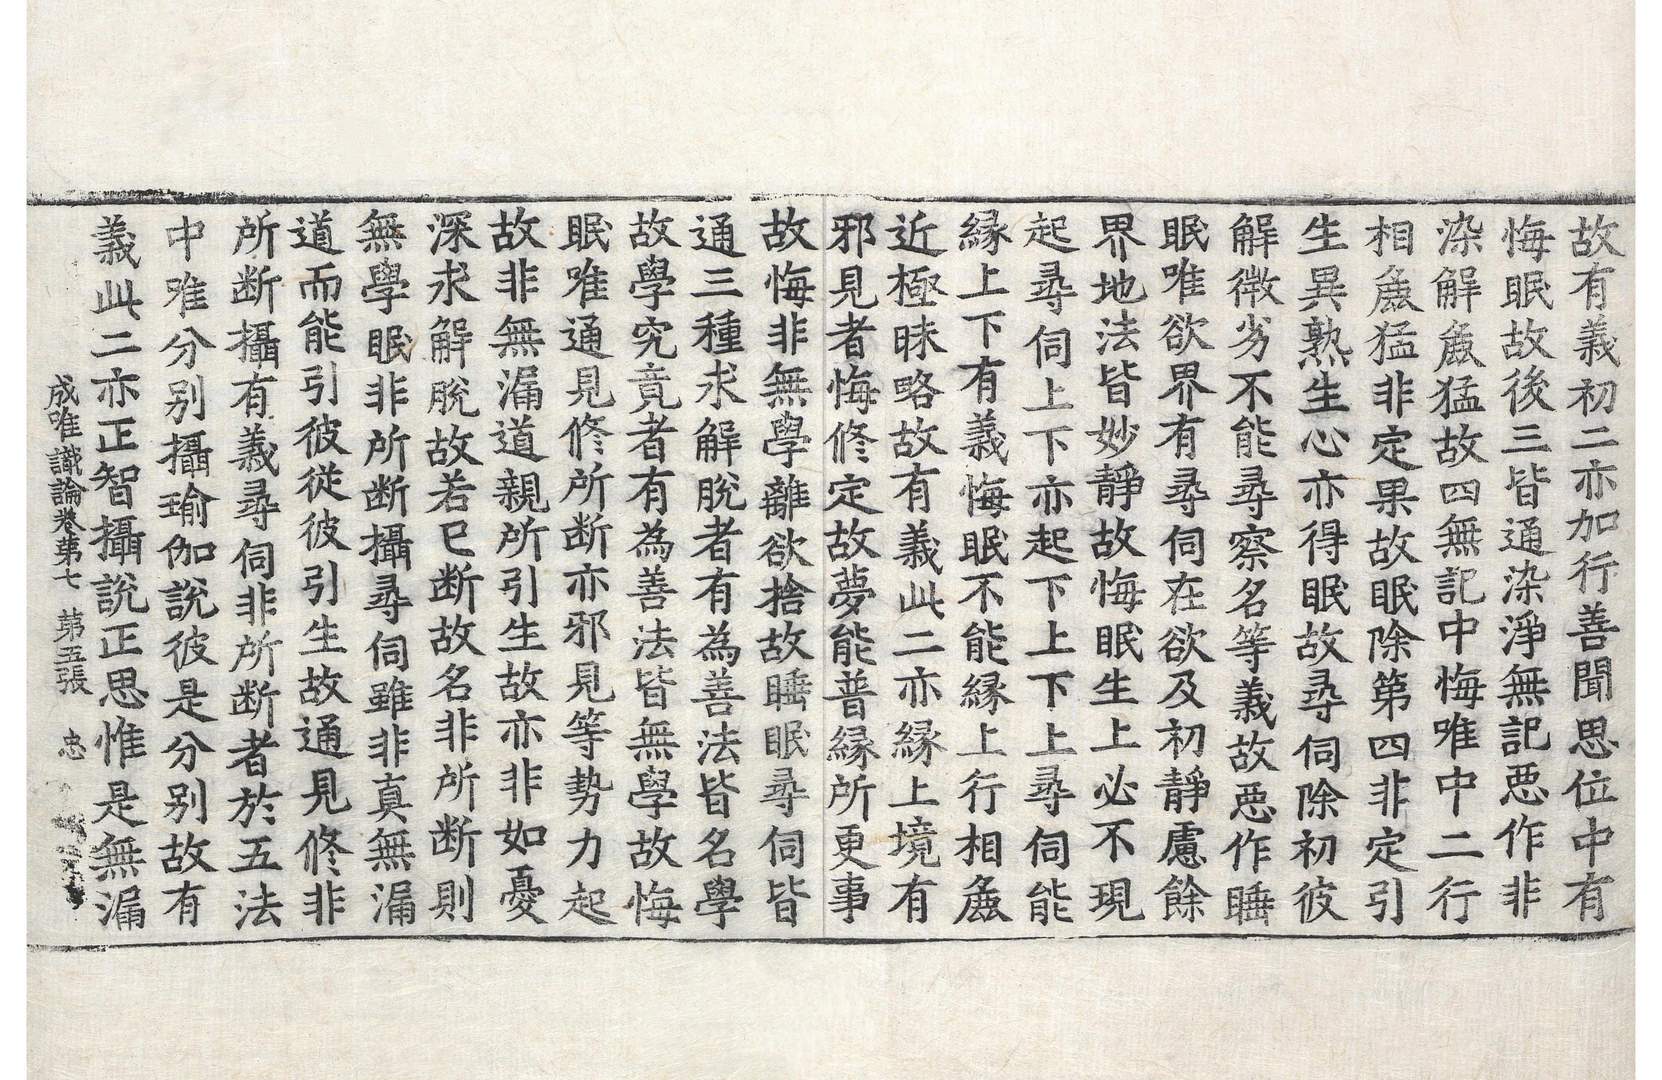 故有義初二亦加行善聞思位中有
悔眠故後三皆通染淨無記惡作非
染解麁猛故四無記中悔唯中二行
相麁猛非定果故眠除第四非定引
生異熟生心亦得眠故尋伺除初彼
解微劣不能尋察名等義故惡作睡
眠唯欲界有尋伺在欲及初靜慮餘
界地法皆妙靜故悔眠生上必不現
起尋伺上下亦起下上下上尋伺能
緣上下有義悔眠不能緣上行相麁
近極昧略故有義此二亦緣上境有
邪見者悔修定故夢能普緣所更事
故悔非無學離欲捨故睡眠尋伺皆
通三種求解脫者有為善法皆名學
故學究竟者有為善法皆無學故悔
眠唯通見修所断亦邪見等勢力起
故非無漏道親所引生故亦非如憂
深求解脫故若已断故名非所断則
無學眠非所断攝尋伺雖非真無漏
道而能引彼從彼引生故通見修非
所断攝有義尋伺非所断者於五法
中唯分別攝瑜伽說彼是分別故有
義此二亦正智攝說正思惟是無漏
成唯識論卷第七 第五張 忠